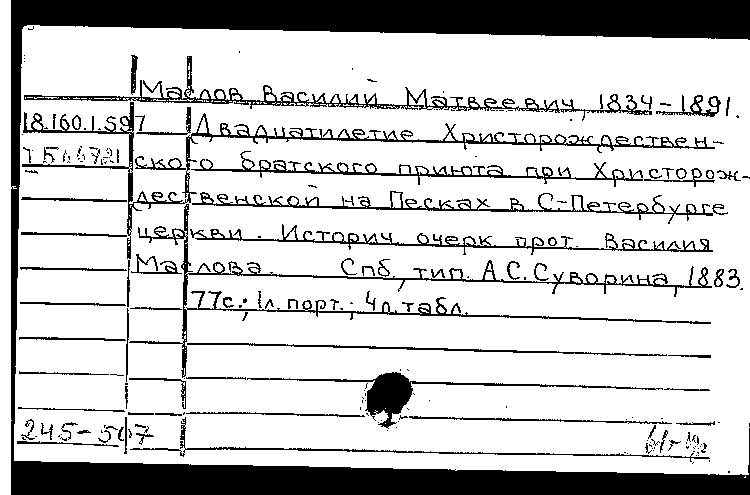 Маслов, Василий Матвеевич, 1834-1891.
18.160.1.597 Двадцатилетие Христорождествен-
ского братского приюта при Христорож-
дественской на Песках в С-Петербурге
церкви. Историч. очерк прот. Василия
Маслова. Спб., тип. А.С. Суворина, 1883.
77с.; 1л. порт.; 4л. табл.
245-507